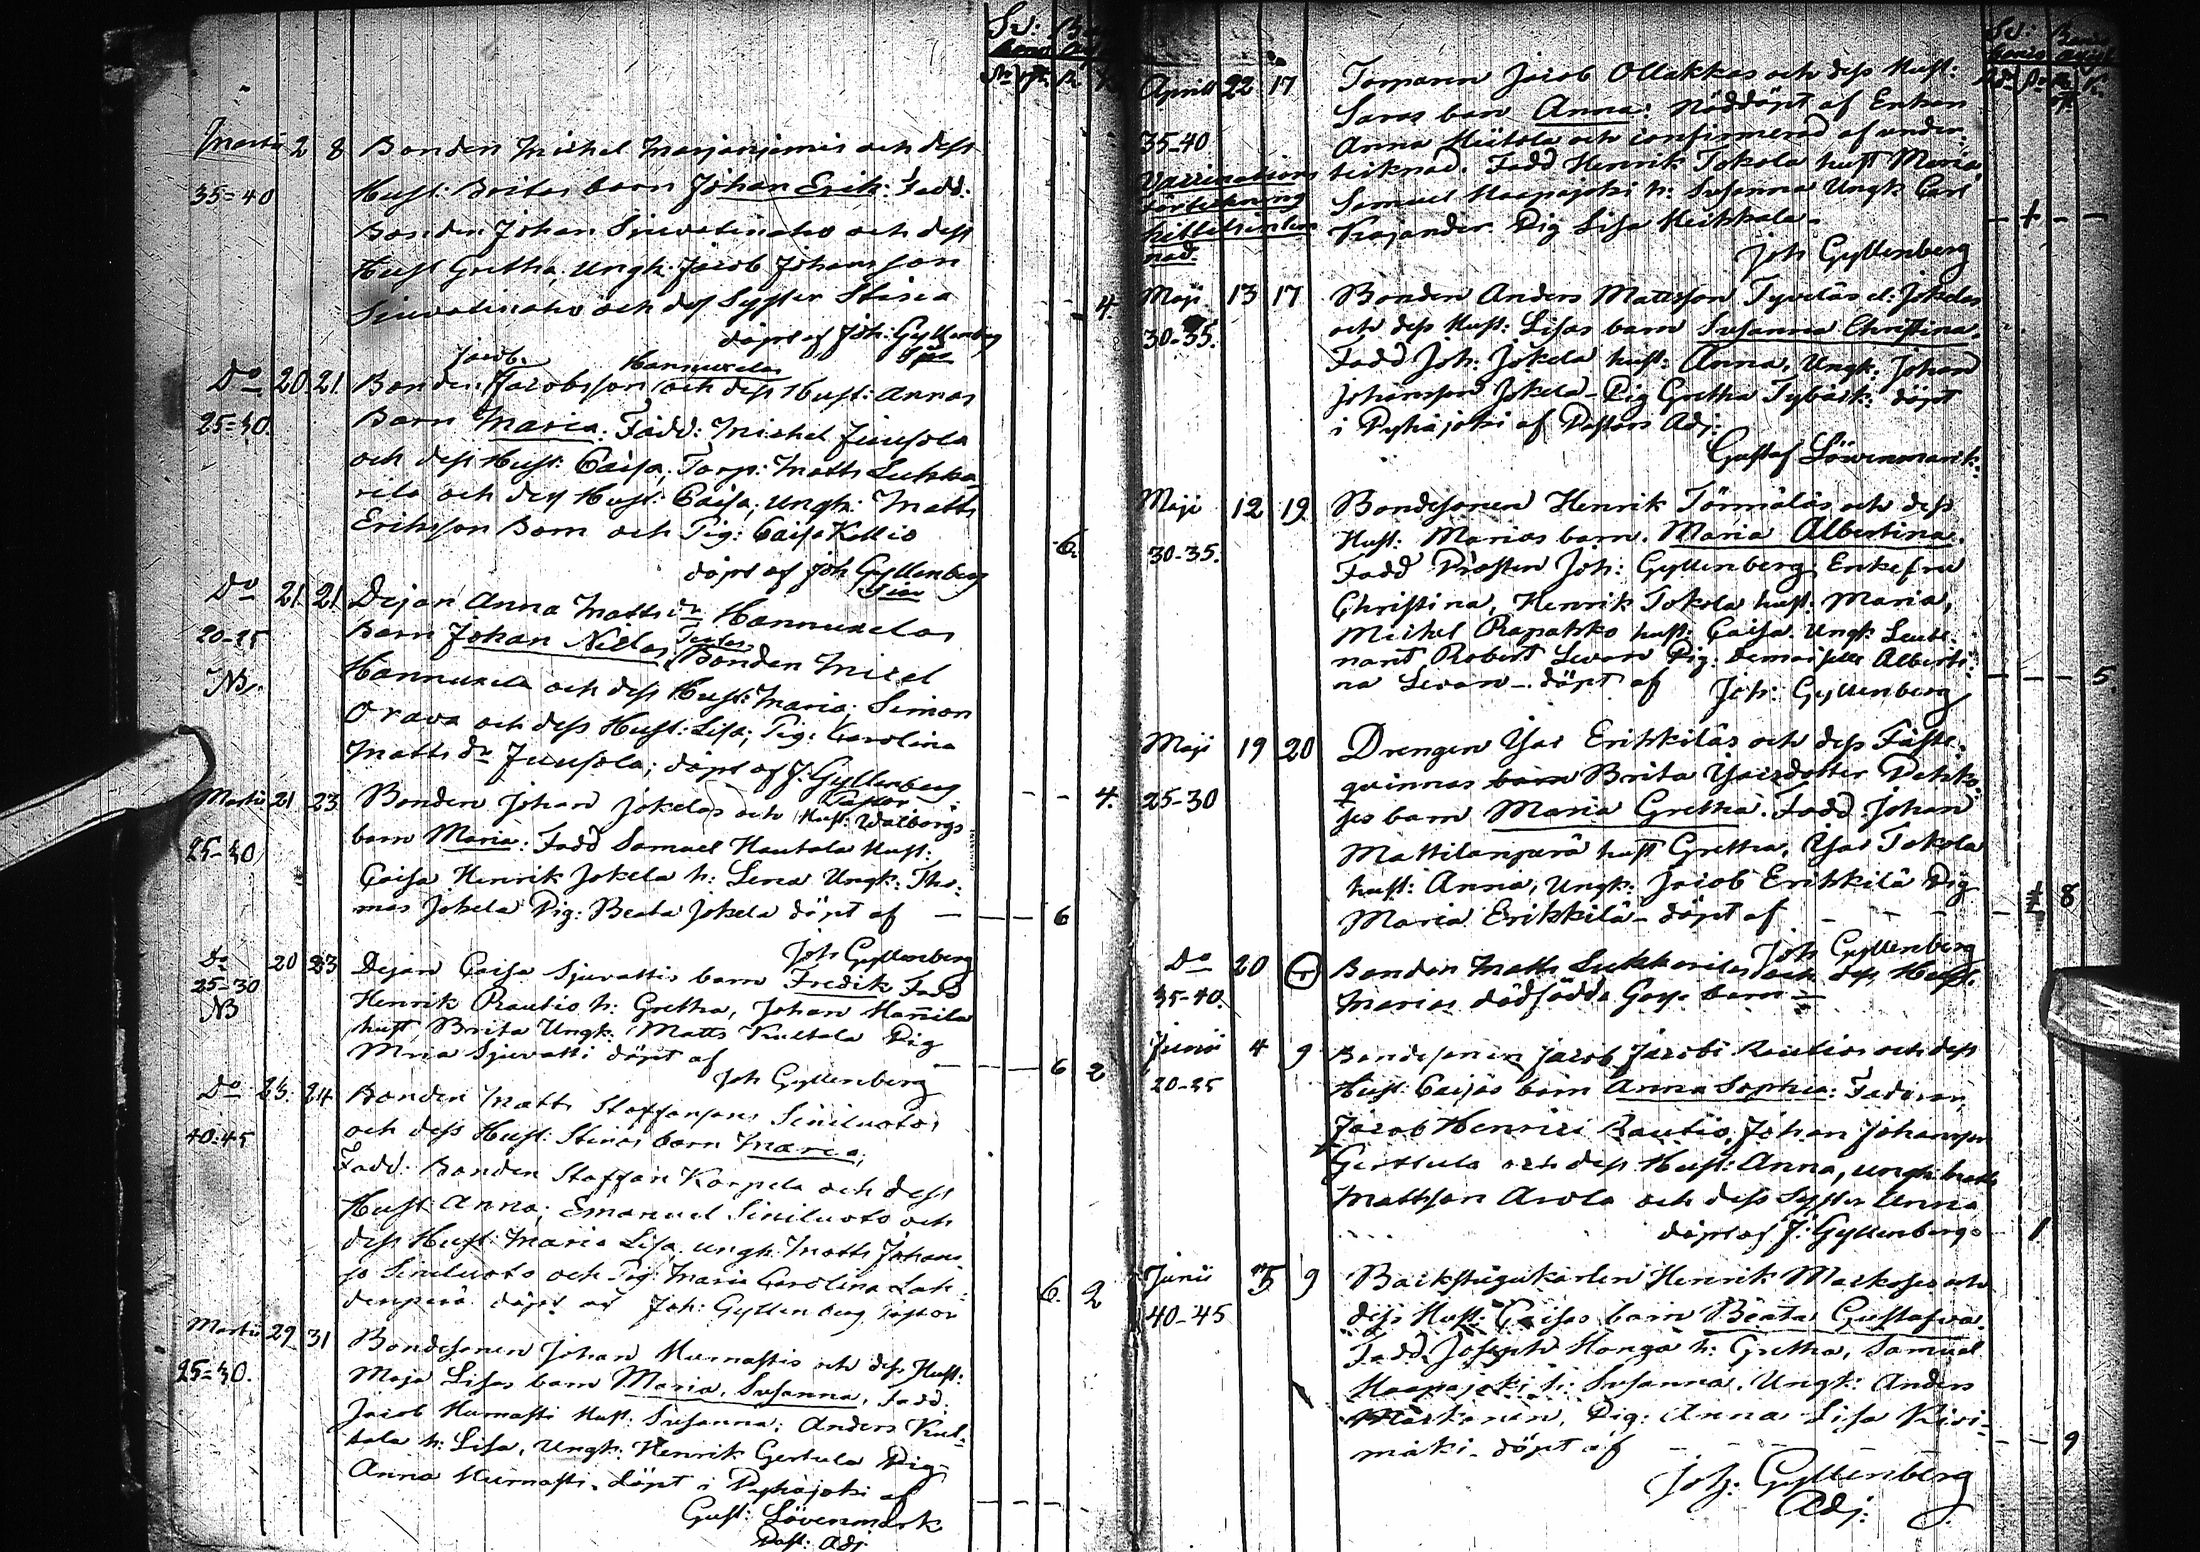 Martii 2 8 Bonden Michel Marjanjemis och dess
35=40 Hust: Britas barn Johan Erik: Fadd:
Bonden Johan Sjuvatinaho och dess
Hust Gretha, Ungk: Jacob Johansson
Siuvatinaho och dess Syster Stina 4.
döpt af Joh: Gyllenberg
Jacob Hannuxelas
Do 20 21 Bonden Jacobsson och dess Hust: Annas
25=30. Barn Maria: Fadd: Michel Juusola
och dess Hust: Caisa, Torp: Matts Lukka-
rila och dess Hust: Caisa, Ungk: Matts
Eriksson Bom och Pig: Caisa Kallio 6.
döpt af Joh Gyllenberg
Do 21 21 Dejan Anna Matts dr Hannuxelas
20-25 Barn Johan Nillas Testes Bonden Micel
NB. Hannuxela och dess Hust: Maria, Simon
Orava och dess Hust: Lisa; Pig: Carolina
Matts dr Juusola; döpt af J. Gyllenberg
Pastor
Martii 21 23 Bonden Johan Jokelas och Hust: Walborgs 4.
25-30 barn Maria: Fadd Samuel Hautala Hust:
Caisa Henrik Jokela h: Lena Ungk: Tho-
mas Jokela Pig: Beata Jokela döpt af — 6
Joh Gyllenberg
Do 20 23 Dejan Caisa Sjuvattis barn Fredik Fadd
25-30
NB Henrik Rautio h: Gretha, Johan Mattila
hust Brita Ungk: Matts Kultala Pig
Mria Sjuvatti döpt af 6 2
Joh Gyllenberg
Do 23. 24 Bonden Matts Staffansson Siniluotos
40.45 och dess Hust: Stinas barn Maria;
Fadd: Bonden Staffan Karpela och dess
Hust: Anna; Emanuel Siniluoto och
dess Hust: Maria Lisa, ungk: Matts Johans-
so Siniluoto och Pig: Maria Carolina Lah-
denperä döpt af Joh: Gyllenberg Pastor 6. 2
Martii 29 31 Bondesonen Johan Murnastis och dess Hust:
25=30. Maja Lisas barn Maria, Susanna, Fadd
Jacob Murnasti Hust: Susanna; Anders Kul-
tala h: Lisa, Ungk: Henrik Gertula Pig
Anna Murnasti. döpt i Pyhäjoki af
Gust: Lövenmark
Past: Adj
Aprill 22 17 Torparen Jacob Ollakkas och dess Hust:
Saras barn Anna: Nöddöpt af Enkan
35-40 Anna Hiitola och confirmerad af under-
Vaccinations tecknad. Fadd Henrik Tokola hust Maria,
förteckning Samuel Haapajoki h: Susanna Ungk Carl
Kajander Pig Lisa Heikkala —
nad. Joh Gyllenberg
Maji 13 17 Bonden Anders Mattsson Tyveläs el: Jokelas
30-35. och dess Hust: Lisas barn Susanna Christina.
Fadd Joh: Jokela hust: Anna, Ungk: Johan
Johansson Jokela — Pig Gretha Tybäck: döpt
i Pyhäjoki af Pastors Adj:
Gustaf Löwenmark.
Maji 12 19 Bondesonen Henrik Törmäläs och dess
30-35. Hust: Marias barn. Maria Albertina.
Fadd Prosten Joh: Gyllenberg Enkefru
Christina, Henrik Tokola hust: Maria,
Michel Rapakko hust: Caisa Ungk Leute-
nant Robert Levon Pig: Demoiselle Alberti-
na Levon — döpt af Joh: Gyllenberg 5.
Maji 19 20 Drengen Isac Erikkiläs och dess Fäste-
25-30 qvinnas barn Brita Isacsdotter
barn Maria Gretha. Fadd Johan
Mattilanperä hust Gretha, Isac Tokola
hust: Anna, Ungk: Jacob Erikkilä Pig
Maria Erikkilä — döpt af — 8
Joh Gyllenberg
Do 20 Bonden Matts Lukkarilas och dess Hust.
35-40. Marias dödfödda Gosse barn —
Junii 4 9 Bondesonen Jacob Jacobi Rautios och dess
20-25 Hust: Caisas barn Anna Sophia: Fadd
Jacob Henrici Rautio, Johan Johansson
Gertula och dess Hust: Anna, ungk: Matts
Mattsson Arola och dess Syster Anna
döpt af J: Gyllenberg 1
Junii 5 9 Backstugukarlen Henrik Markoses och
40-45 dess Hust: Caisas barn Beata Gustafva.
Fadd. Joseph Hanga h: Gretha, Samuel
Haapajoki h: Susanna. Ungk: Anders
Markonen, Pig: Anna Lisa Kivi-
mäki. döpt af 9
Joh: Gyllenberg
Adj: